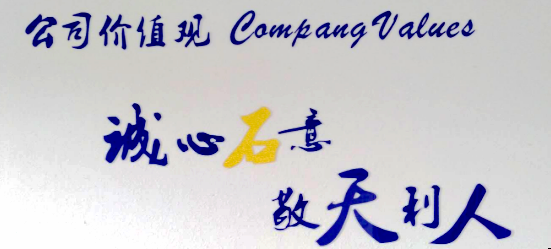 公司价值观 Compang Values
誠心石意
敬天利人